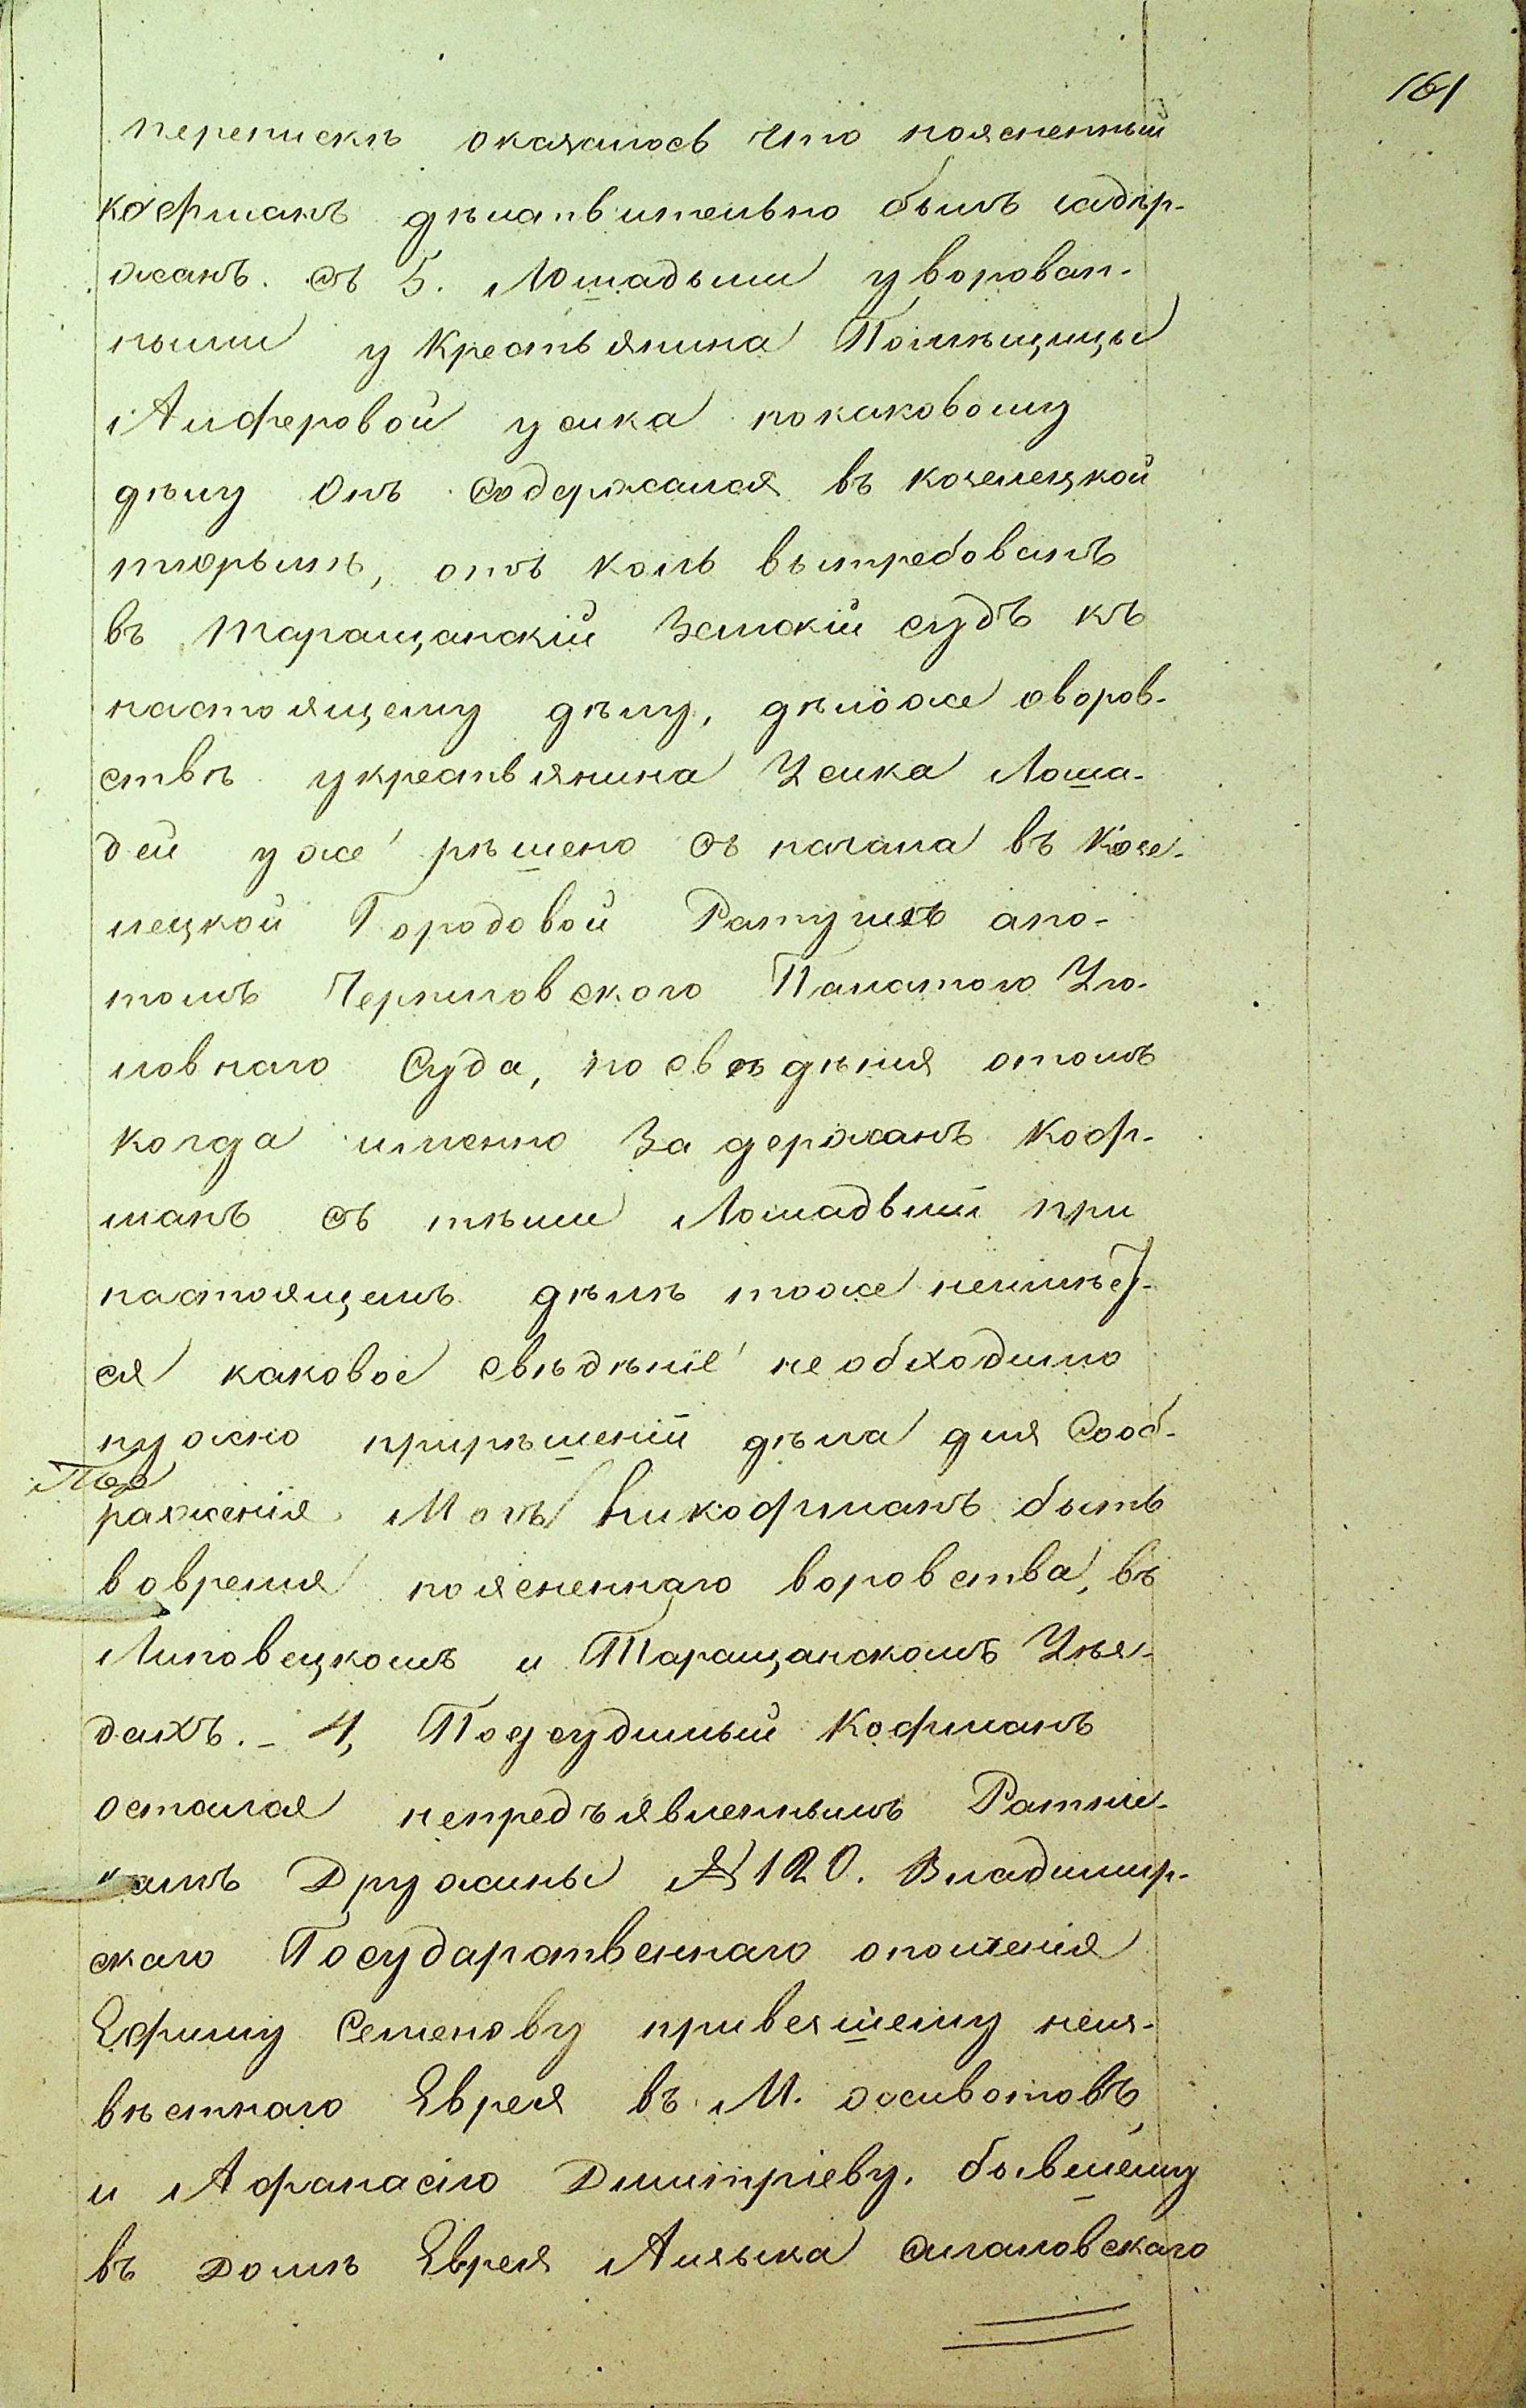 161
перепискѣ оказалось что поясненный
кофманъ дѣиствительно былъ задѣр-
жанъ. съ 5. Лошадьми уворован-
ными у Крестьянина Помѣщицы
Алферовой усика покаковому
дѣлу Онъ Содержался въ козелецкой
тюрьмѣ, отъ коль вытребованъ
въ таращанскій Земскій судъ къ
настоящему дѣлу, дѣло же оворов-
ствѣ укрестьянина Усика Лоша-
дей уже рѣшено съ начала въ Козе-
лецкой Городовой Ратушѣ апо-
томъ Черниговского Палатого Уго-
ловнаго Суда, но свѣдѣния отомъ
когда именно За держанъ Коф-
манъ съ тѣми Лошадьми при
настоящемъ дѣлѣ тоже неимѣет-
ся каковое свѣдѣніе необходимо
нужно прирѣшеніи дѣла для Сооб-
раженія Могъ ли кофманъ быть
вовремя поясненнаго воровства, въ
Липовецкомъ и Таращанскомъ Уѣз-
дахъ. - 4, Подсудимый Кофманъ
остался непредъявленнымъ Ратни-
камъ Дружины № 120. Владимир-
скаго Государственнаго ополченія
Ефиму Семенову привезшему неиз-
вѣстнаго Еврея въ М. животовъ,
и Афанасію Дмитріеву. бывшему
въ домѣ Еврея Аизыка Смаловскаго